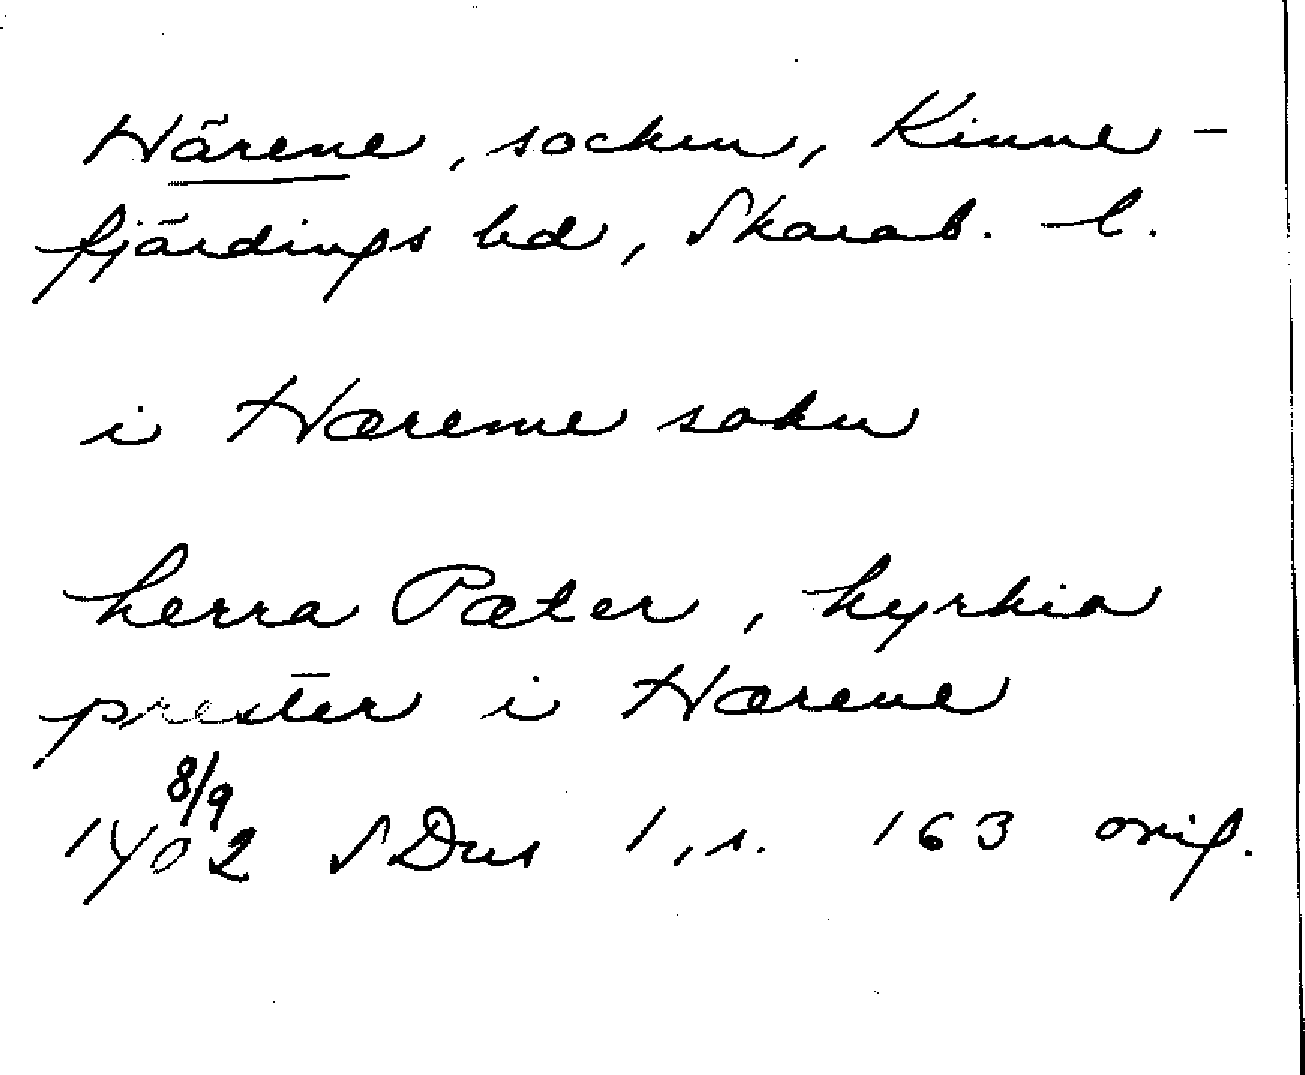 Härene, socken, Kinne-
fjärdings hd, Skarab. l.
i Hærene sokn
herra Pæter, kyrkia
prester i Hærene
1402 8/9 SDns 1, s. 163 orig.